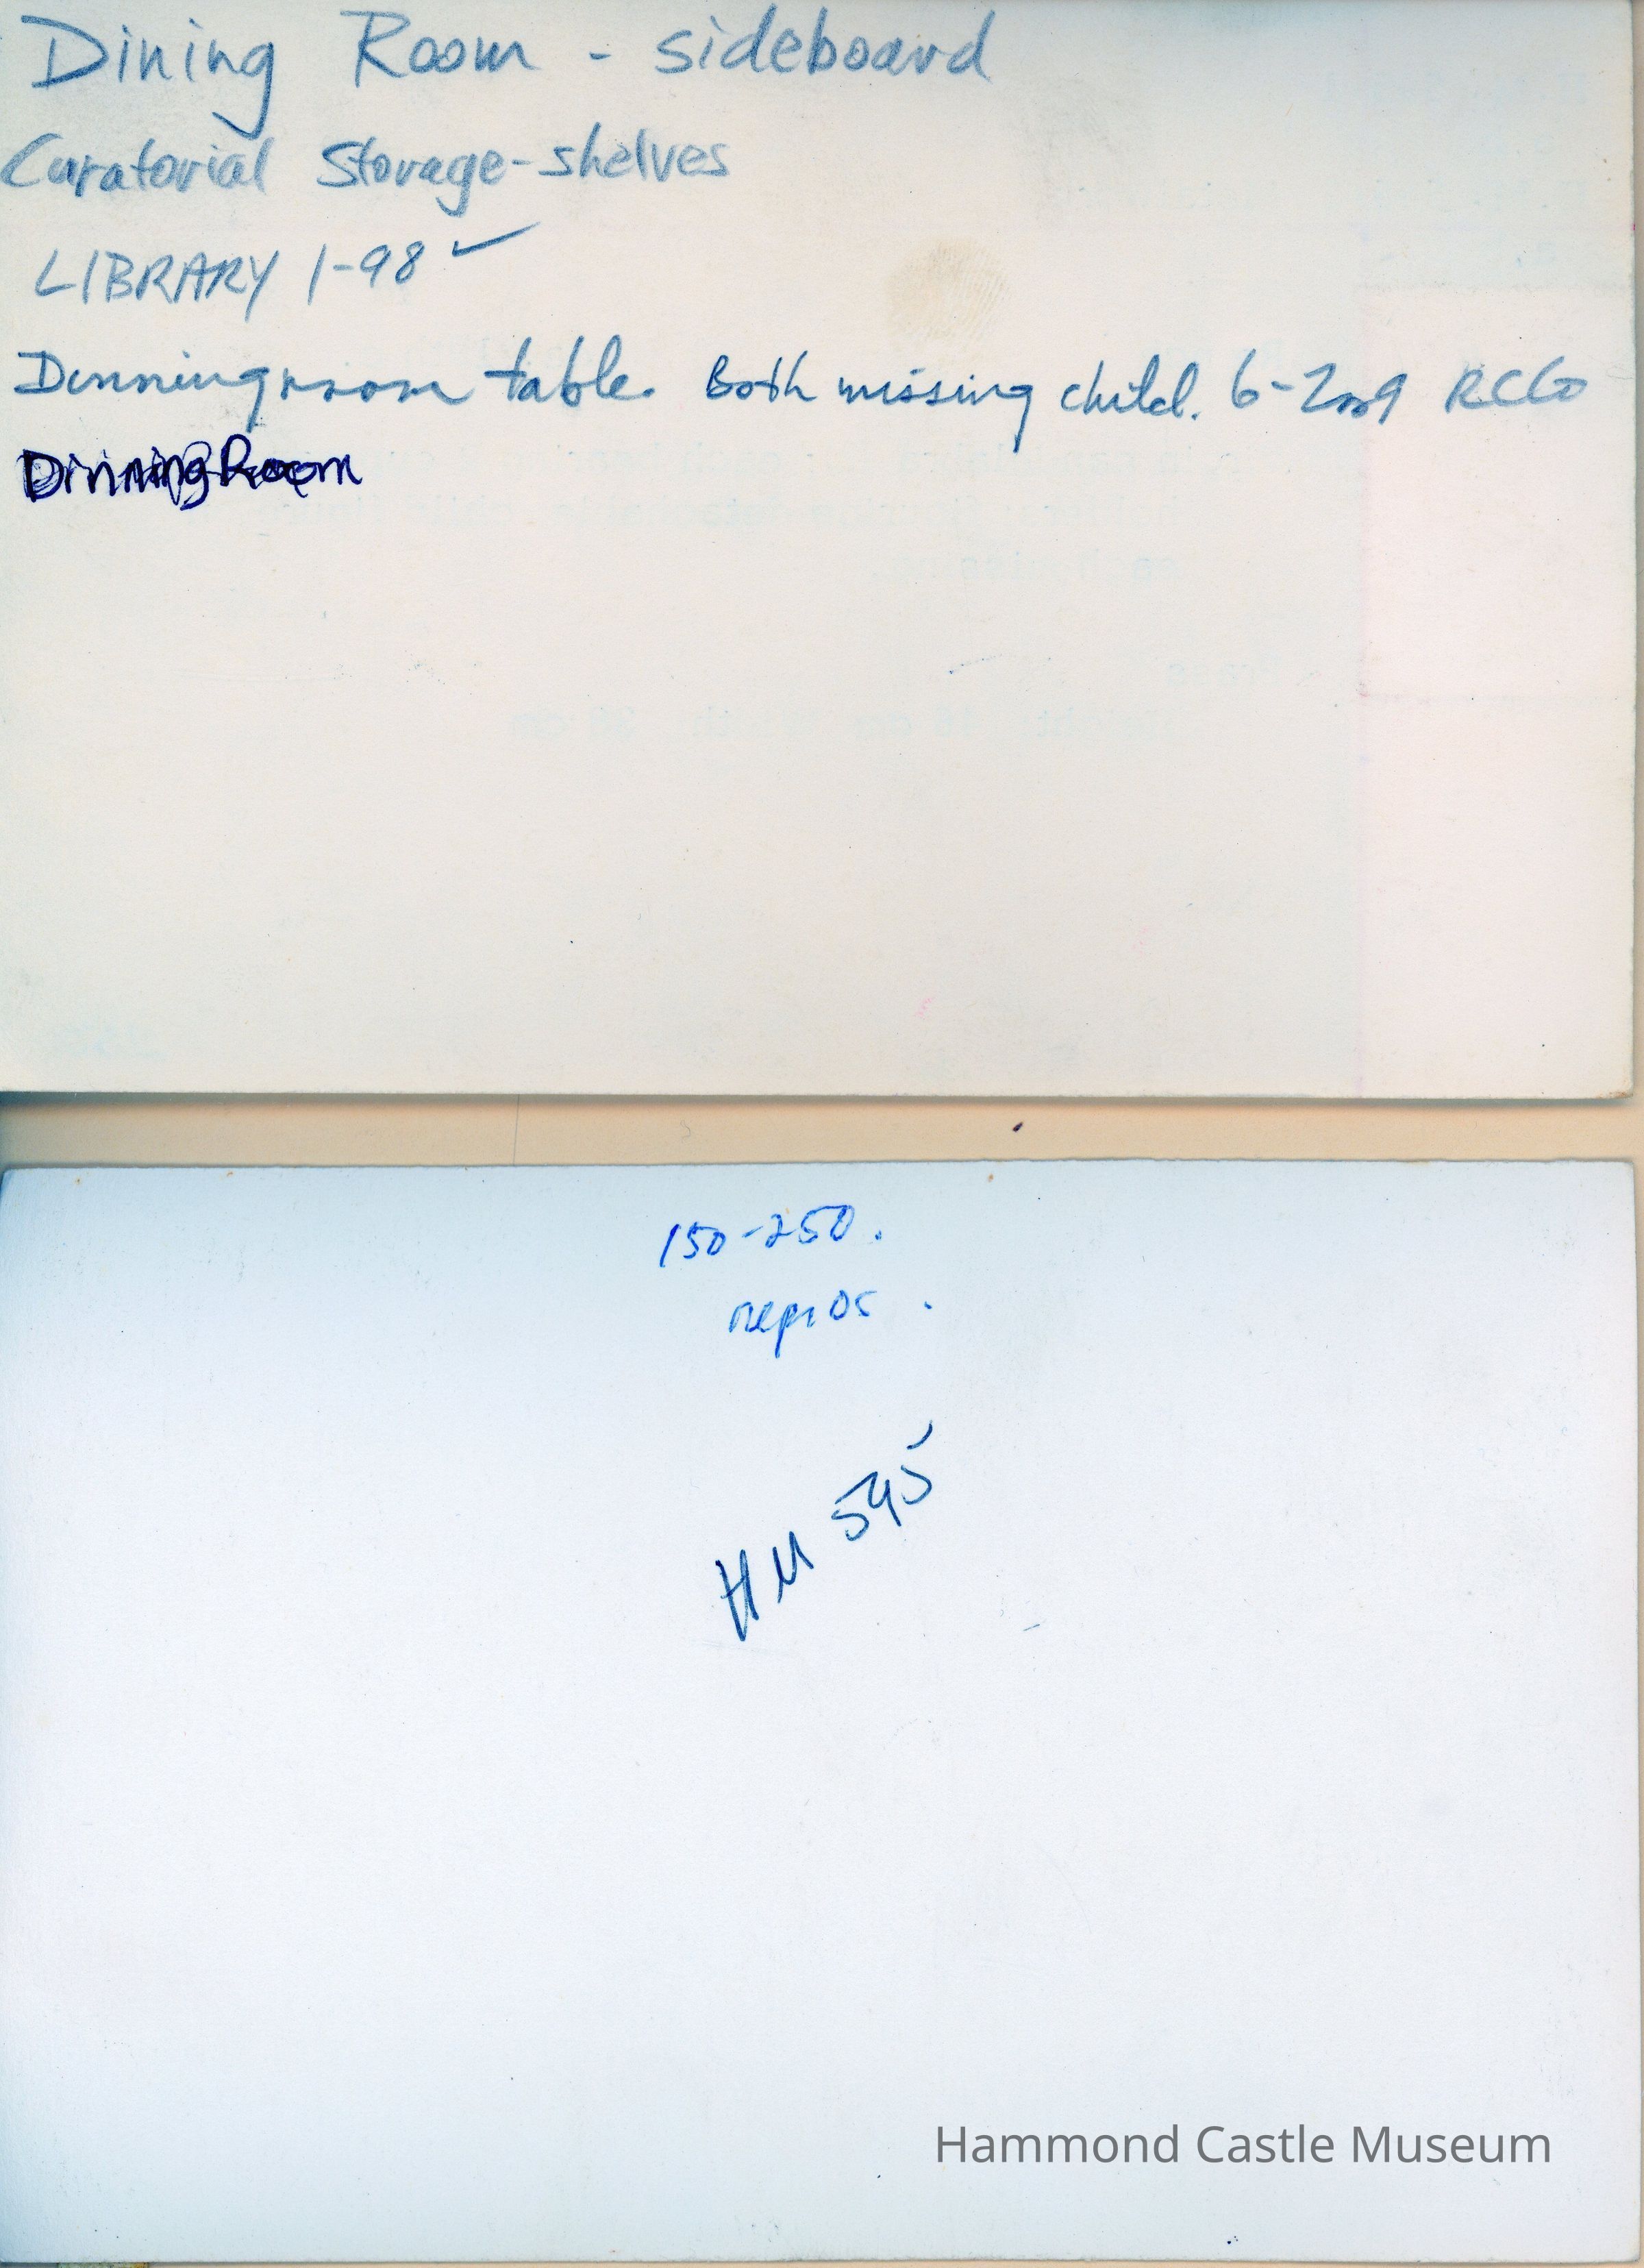 Dining Room - sideboard
Curatorial Storage-shelves
LIBRARY 1-98 ✓
Dinningroom table. Both missing child. 6-2009
Dinning Room
150-250.
HM 595
Hammond Castle Museum